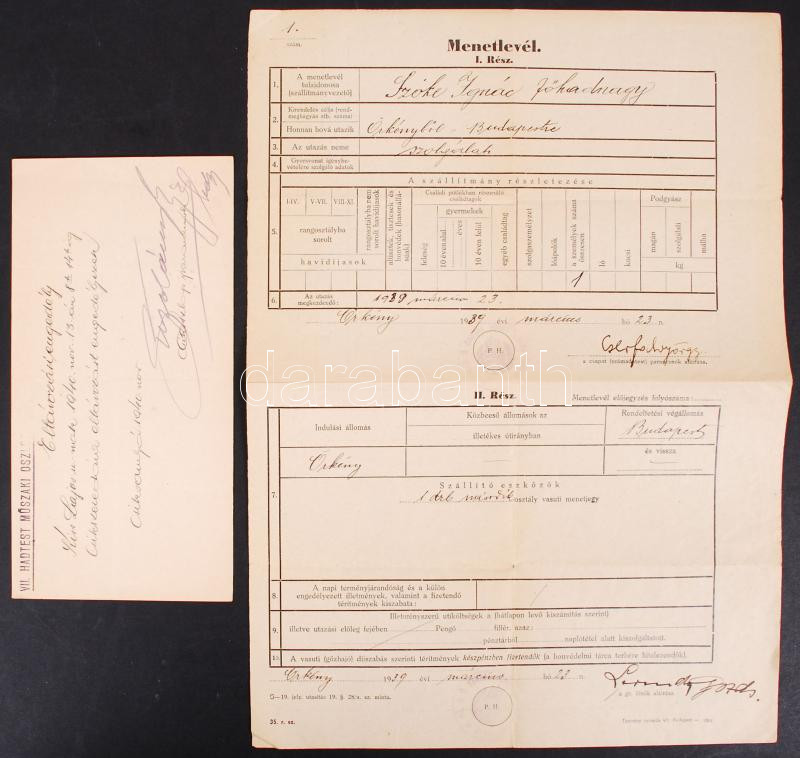 1.
szám.
Menetlevél.
I. Rész.
1. A menetlevél
tulajdonosa
(szállítmányvezető)
Szőke Ignác főhadnagy
2. Kirendelés célja (rend-
meghagyás stb. száma)
Honnan hová utazik
Örkényből - Budapestre
3. Az utazás neme
szolgálati
4. Gyorsvonat igénybe-
vételére szolgáló adatok
A szállítmány részletezése
5.
I-IV. V-VII. VIII-XI.
rangosztályba
sorolt
havidíjasok
rangosztályba nem
sorolt havidíjasok
altisztek, tisztesek és
honvédek (hasonállá-
súak)
Családi pótlékban részesülő
családtagok
feleség
gyermekek
10 éven alul
éves
10 éven felül
egyéb családtag
szolgaszemélyzet
leápolók
a személyek száma
összesen
1
ló
kocsi
Podgyász
magán
szolgálati
kg
málha
6. Az utazás
megkezdendő:
1939 március 23.
Örkény 1939 évi március hó 23 n.
P. H.
a csapat (számadótest) parancsnok aláírása.
II. Rész.
Menetlevél előjegyzés folyószáma:
7.
Indulási állomás
Közbeeső állomások az
illetékes útirányban
Rendeltetési végállomás
Budapest
Örkény
és vissza
Szállító eszközök
1 drb második osztály vasuti menetjegy
8. A napi terményjárandóság és a külön
engedélyezett illetmények, valamint a fizetendő
térítmények kiszabata:
9. Illetményszerű utiköltségek a (hátlapon levő kiszámítás szerint)
illetve utazási előleg fejében Pengő fillér, azaz:
pénztárból naplótétel alatt kiszolgáltatott.
10. A vasuti (gőzhajó) díjszabás szerinti térítmények készpénzben fizetendők (a honvédelmi tárca terhére hitelezendők).
Örkény 1939 évi március hó 23 n.
P. H.
a gt. főnök aláírása
G—19. jelz. utasítás 19. § 28/a. sz. minta.
35. r. sz.
VII. HADTEST MŰSZAKI OSZT
Eltávozási engedély
Kiss Lajos
1940. nov. 13.
1940 nov
darabanth